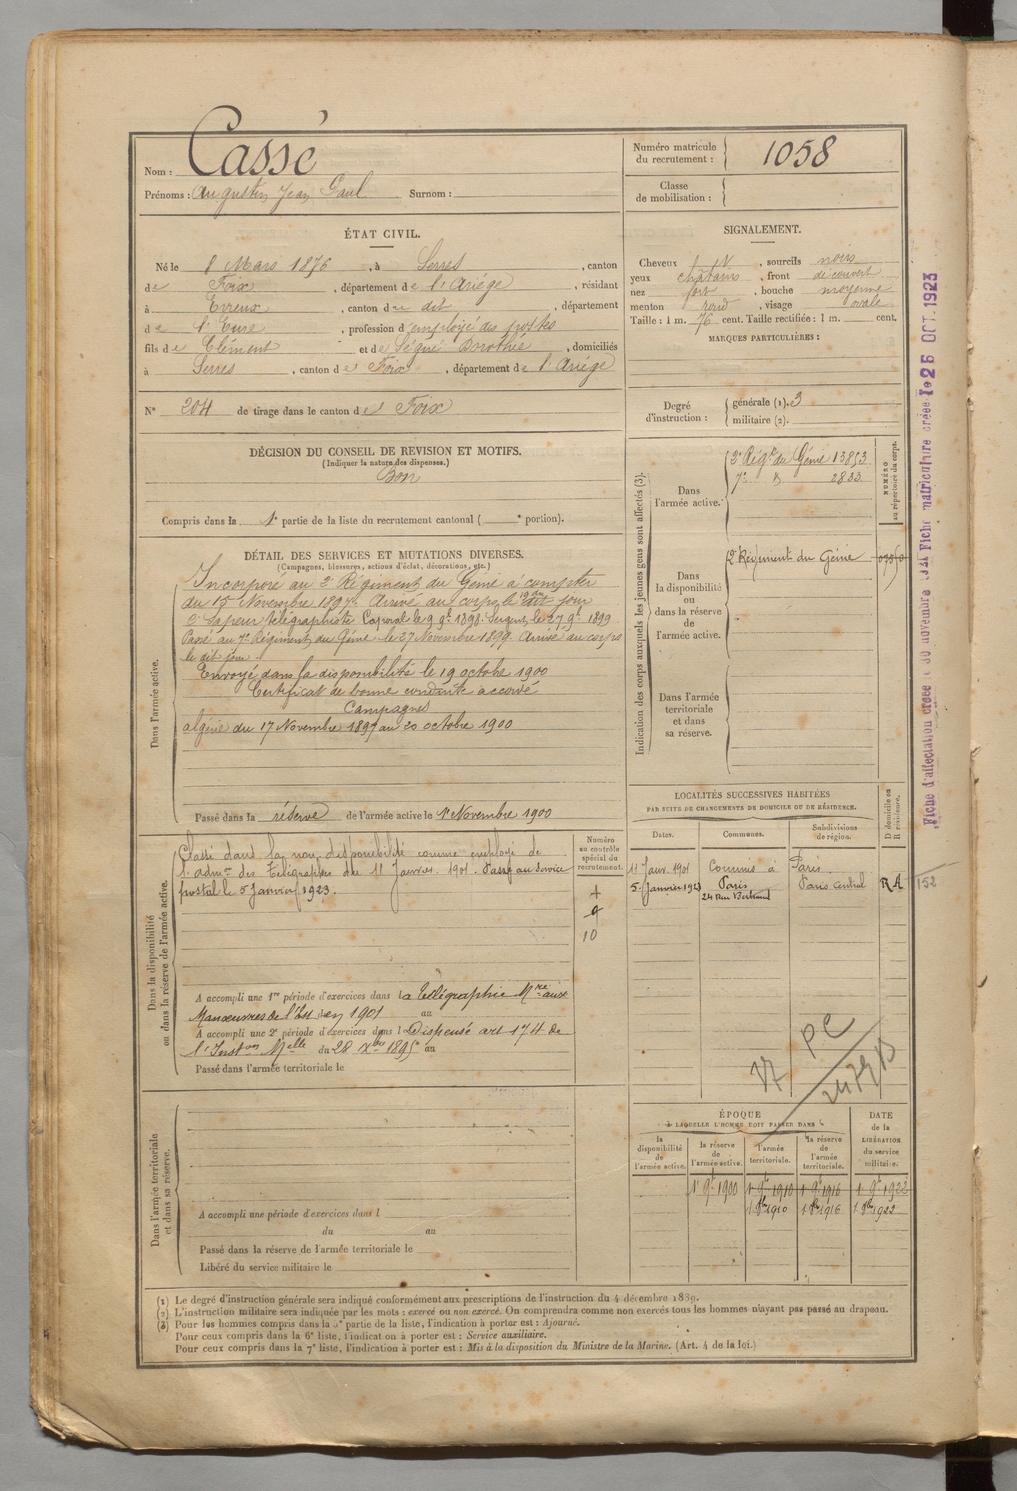 Nom : Cassé
Prénoms : Augustin Jean Paul Surnom :
Numéro matricule du recrutement : 1058
Classe de mobilisation :
ÉTAT CIVIL.
Né le 8 Mars 1876, à Serres, canton
de Foix, département de l'Ariège, résidant
à Evreux, canton de dit, département
de l'Eure, profession d'employé des postes
fils de Clément et de Ségué Dorothée, domiciliés
à Serres, canton de Foix, département de l'Ariège
N° 204 de tirage dans le canton de Foix
SIGNALEMENT.
Cheveux, sourcils noirs
yeux châtains, front découvert
nez fort, bouche moyenne
menton rond, visage ovale
Taille : 1 m. 76 cent. Taille rectifiée : 1 m. cent.
MARQUES PARTICULIÈRES :
Degré d'instruction : générale (1). 3
militaire (2).
DÉCISION DU CONSEIL DE REVISION ET MOTIFS.
(Indiquer la nature des dispenses.)
Bon
Compris dans la 1e partie de la liste du recrutement cantonal ( e portion).
DÉTAIL DES SERVICES ET MUTATIONS DIVERSES.
(Campagnes, blessures, actions d'éclat, décorations, etc.)
Dans l'armée active.
Incorporé au 2e Régiment du Génie à compter
du 15 Novembre 1897. Arrivé au corps le dit jour
2e Sapeur télégraphiste Caporal le 9 9bre 1898. Sergent le 27 9bre 1899
Passé au 7e Régiment du Génie le 27 Novembre 1899. Arrivé au corps
le dit jour.
Envoyé dans la disponibilité le 19 octobre 1900
Certificat de bonne conduite accordé
Campagnes
Algérie du 17 Novembre 1897 au 20 octobre 1900
Passé dans la réserve de l'armée active le 1er Novembre 1900
Indication des corps auxquels les jeunes gens sont affectés (3).
NUMÉRO au répertoire du corps.
Dans l'armée active.
2e Régt du Génie 13853
7e d° 2833
Dans la disponibilité ou dans la réserve de l'armée active.
2e Régiment du Génie
Dans l'armée territoriale et dans sa réserve.
Fiche d'affectation créée le 30 novembre Fiche matriculaire créée le 26 OCT. 1923
Dans la disponibilité ou dans la réserve de l'armée active.
Numéro au contrôle spécial du recrutement.
Classé dans la non disponibilité comme employé de
l'admon des Télégraphes du 11 Janvier 1901. Passé au service
postal le 5 Janvier 1923.
+
9
10
A accompli une 1re période d'exercices dans la télégraphie Mre aux
Manœuvres de l'Est en 1901 au
A accompli une 2e période d'exercices dans l Dispensé art 174 de
l'Inston Melle du 28 Xbre 1895 au
Passé dans l'armée territoriale le
LOCALITÉS SUCCESSIVES HABITÉES
PAR SUITE DE CHANGEMENTS DE DOMICILE OU DE RÉSIDENCE.
Dates. Communes. Subdivisions de région. D domicile ou R résidence.
11 Janv. 1901 Commis à Paris Paris
5 Janvier 1923 Paris Paris central R A 152
24 Rue Bertrand
PC
Dans l'armée territoriale et dans sa réserve.
A accompli une période d'exercices dans l
du au
Passé dans la réserve de l'armée territoriale le
Libéré du service militaire le
ÉPOQUE
À LAQUELLE L'HOMME DOIT PASSER DANS
la disponibilité de l'armée active. la réserve de l'armée active. l'armée territoriale. la réserve de l'armée territoriale.
DATE de la LIBÉRATION du service militaire.
1er 9bre 1900 1er 9bre 1910 1er 9bre 1916 1er 9bre 1922
1 8bre 1910 1 8bre 1916 1 8bre 1922
(1) Le degré d'instruction générale sera indiqué conformément aux prescriptions de l'instruction du 4 décembre 1889.
(2) L'instruction militaire sera indiquée par les mots : exercé ou non exercé. On comprendra comme non exercés tous les hommes n'ayant pas passé au drapeau.
(3) Pour les hommes compris dans la 5e partie de la liste, l'indication à porter est : Ajourné.
Pour ceux compris dans la 6e liste, l'indication à porter est : Service auxiliaire.
Pour ceux compris dans la 7e liste, l'indication à porter est : Mis à la disposition du Ministre de la Marine. (Art. 4 de la loi.)